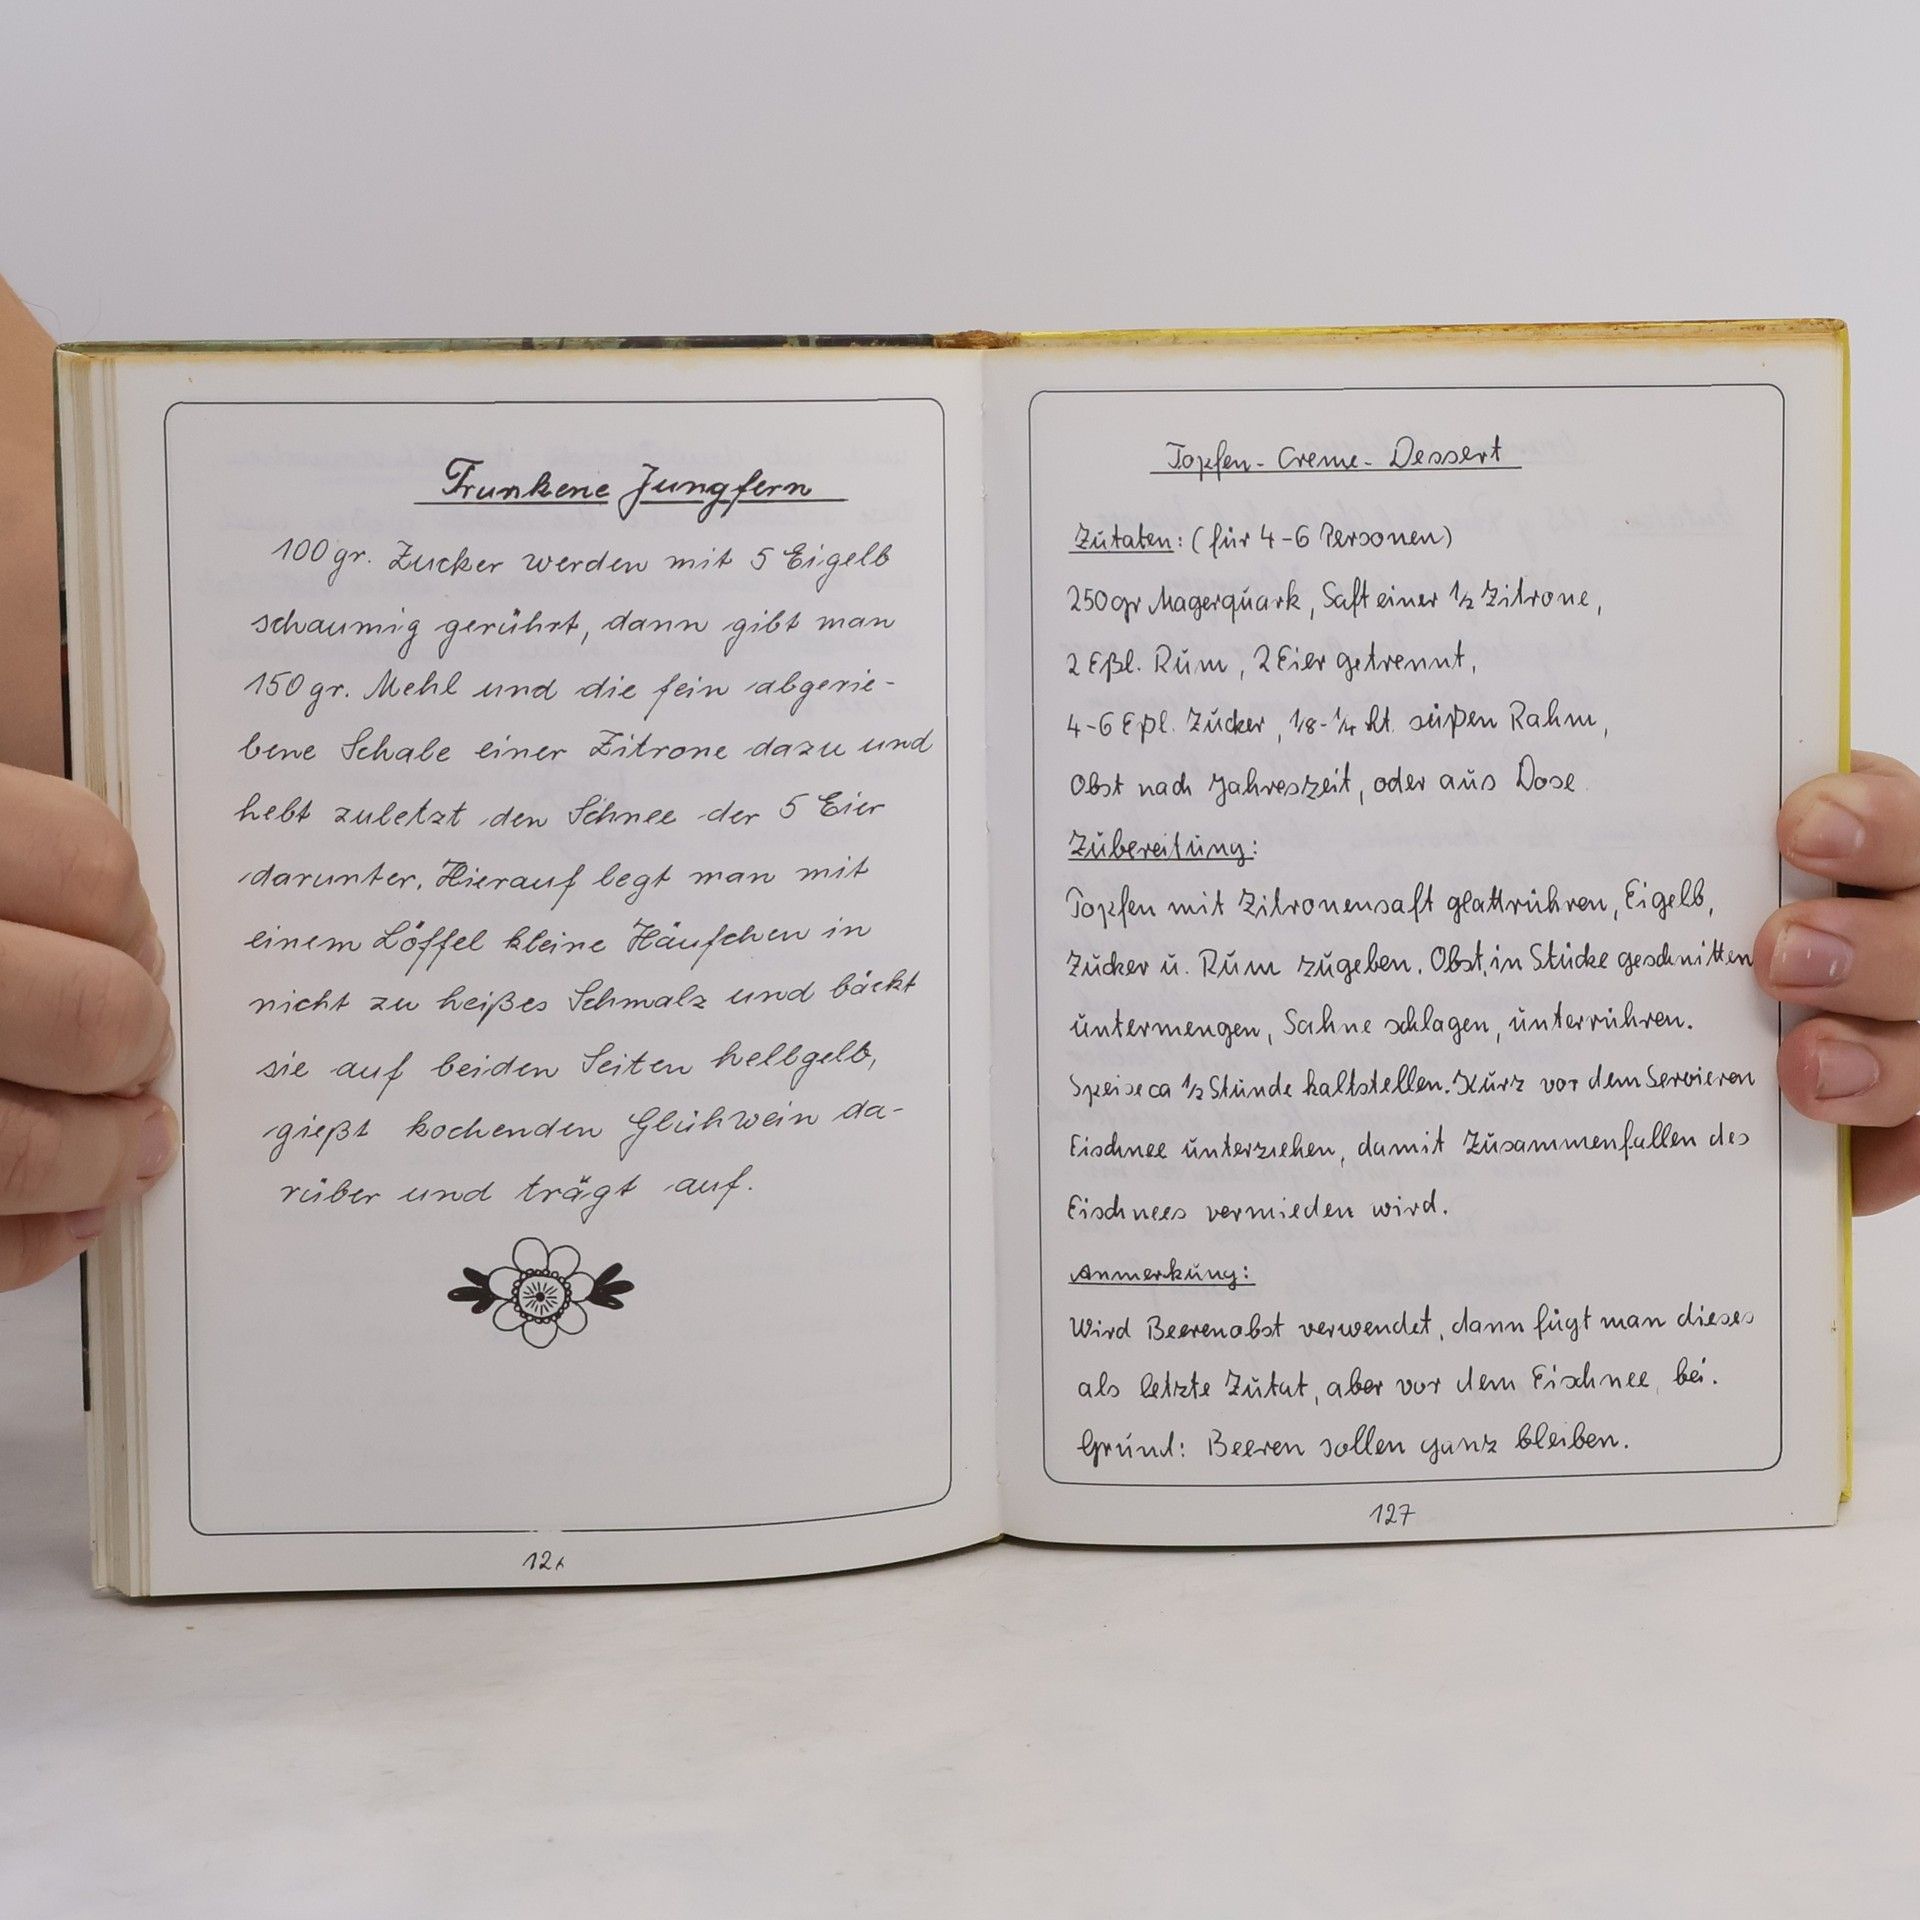 Trunkene Jungfern
100 gr. Zucker werden mit 5 Eigelb
schaumig gerührt, dann gibt man
150 gr. Mehl und die fein abgerie-
bene Schale einer Zitrone dazu und
hebt zuletzt den Schnee der 5 Eier
darunter. Hierauf legt man mit
einem Löffel kleine Häufchen in
nicht zu heißes Schmalz und bäckt
sie auf beiden Seiten hellgelb,
gießt kochenden Glühwein da-
rüber und trägt auf.
126
Topfen-Creme-Dessert
Zutaten: (für 4-6 Personen)
250gr Magerquark, Saft einer 1/2 Zitrone,
2 Eßl. Rum, 2 Eier getrennt,
4-6 Eßl. Zucker, 1/8-1/4 lt. süßen Rahm,
Obst nach Jahreszeit, oder aus Dose.
Zubereitung:
Topfen mit Zitronensaft glattrühren, Eigelb,
Zucker u. Rum zugeben. Obst, in Stücke geschnitten
untermengen, Sahne schlagen, unterrühren.
Speise ca 1/2 Stunde kaltstellen. Kurz vor dem Servieren
Eischnee unterziehen, damit Zusammenfallen des
Eischnees vermieden wird.
Anmerkung:
Wird Beerenobst verwendet, dann fügt man dieses
als letzte Zutat, aber vor dem Eischnee, bei.
Grund: Beeren sollen ganz bleiben.
127